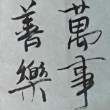 萬事
善樂